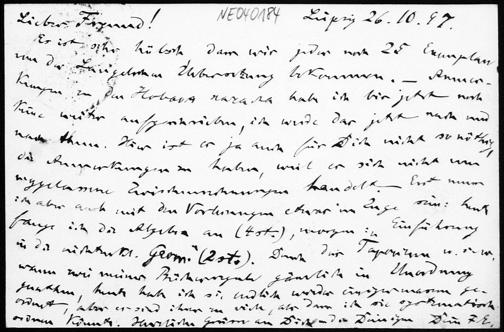 NE040184
Lieber Freund! Leipzig 26.10.97.
Es ist sehr hübsch dass wir jeder noch 25 Exemplare
von der Übersetzung bekommen. — Anmer-
kungen zu den habe ich bis jetzt noch
keine weiter aufgeschrieben, ich werde das jetzt nach und
nach thun. Hier ist es ja auch für Dich nicht so nöthig,
die Anmerkungen zu haben, weil es sich nicht um
weggelassene Zwischenrechnungen handelt. — Erst muss
ich aber auch mit den Vorlesungen etwas im Zuge sein: heute
fange ich die Algebra an (4st.), morgen die Einführung
in die nichteukl. Geom. (2st.). Durch das Tapezieren u.s.w.
waren zwei meiner Bücherregale gänzlich in Unordnung
gerathen, heute habe ich sie endlich wieder einigermassen ge-
ordnet, aber es sind ihrer zu viele, als dass ich sie systematisch
ordnen könnte. Herzliche Grüsse an Dich u. die Deinigen Dein F.E.